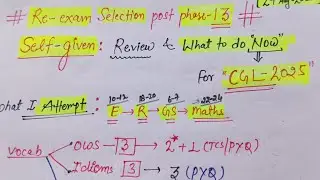 # Re-exam Selection post phase-13 #
Self-given: Review & What to do "Now"
For "CGL-2025"
What I Attempt: E → R → GS → Maths
10-12 18-20 6-7 22-24
Vocab
OWS → 3 → 2* + 1 (TCS/PYQ)
Idioms 3 → 3 (PYQ)